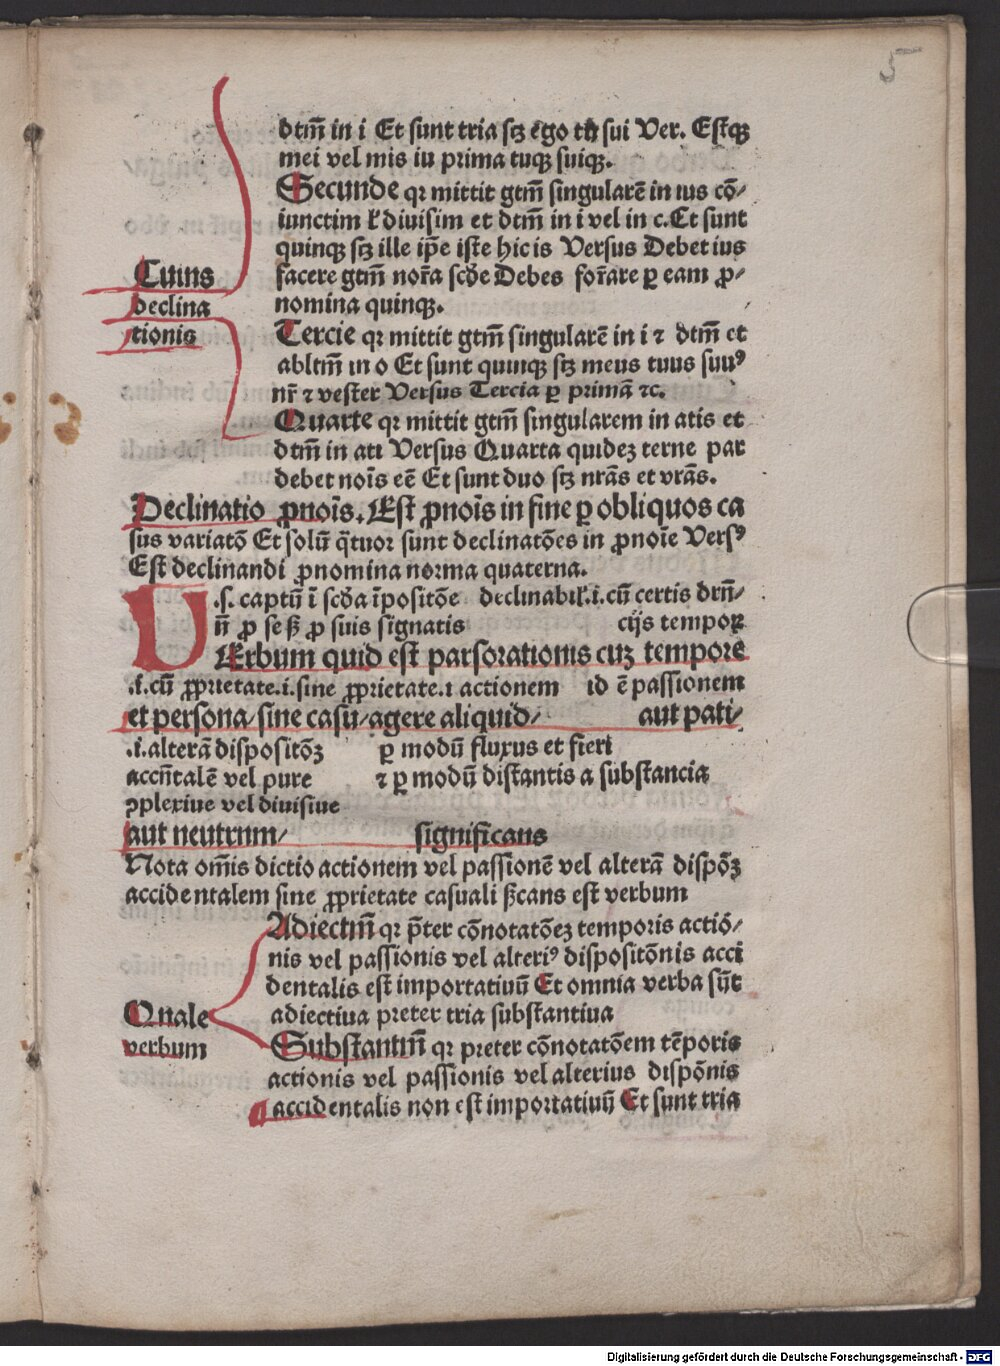 5
dtm̄ in i Et sunt tria sꝫ ego tu sui Ver. Estqꝫ
mei vel mis iu prima tuqꝫ suiqꝫ.
Secunde qꝛ mittit gtm̄ singularē in ius cō⸗
iunctim ł diuisim et dtm̄ in i vel in c. Et sunt
quinqꝫ sꝫ ille ip̄e iste hic is Versus Debet ius
facere gtm̄ nor̄a scd̄e Debes for̄are ꝑ eam ꝓ⸗
nomina quinqꝫ.
Cuius
declina
tionis
Tercie qꝛ mittit gtm̄ singularē in i ⁊ dtm̄ et
abltm̄ in o Et sunt quinqꝫ sꝫ meus tuus suuꝰ
nr̄ ⁊ vester Versus Tercia ꝑ primā ⁊c.
Quarte qꝛ mittit gtm̄ singularem in atis et
dtm̄ in ati Versus Quarta quideꝫ terne par
debet noīs eē Et sunt duo sꝫ nrās et vrās.
Declinatio ꝓnoīs. Est ꝓnoīs in fine ꝑ obliquos ca
sus variatō Et solū q̄tuor sunt declinatōes in ꝓnoīe Versꝰ
Est declinandi ꝓnomina norma quaterna.
.s. captū ī scd̄a īpositōe declinabił.i. cū certis drn̄⸗
n̄ ꝓ se sꝫ ꝓ suis signatis cijs tempoꝝ
UErbum quid est parsorationis cuꝫ tempore
.i. cū ꝓprietate .i. sine ꝓprietate .i actionem id ē passionem
et persona/ sine casu/ agere aliquid/ aut pati/
.i. alterā dispositōꝫ ꝑ modū fluxus et fieri
accn̄talē vel pure ⁊ ꝑ modū distantis a substancia
ꝯplexiue vel diuisiue
aut neutrum/ significans
Nota om̄is dictio actionem vel passionē vel alterā dispōꝫ
accidentalem sine ꝓprietate casuali sꝫcans est verbum
Adiectm̄ qꝛ p̄ter cōnotatōeꝫ temporis actiō⸗
nis vel passionis vel alteriꝰ dispositōnis acci
dentalis est importatiuū Et omnia verba sūt
adiectiua preter tria substantiua
Quale
verbum
Substantm̄ qꝛ preter cōnotatōem tēporis
actionis vel passionis vel alterius dispōnis
accidentalis non est importatiuū Et sunt tria
Digitalisierung gefördert durch die Deutsche Forschungsgemeinschaft - DFG